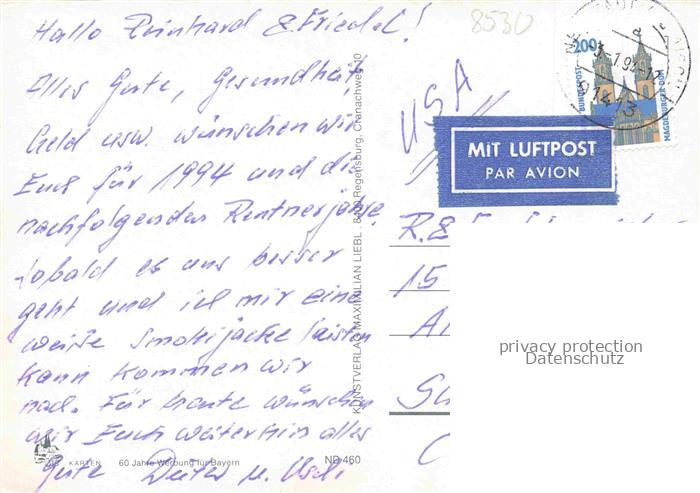 Hallo Reinhard & Friedel!
Alles Gute, Gesundheit,
Geld usw. wünschen wir
Euch für 1994 und die
nachfolgenden Rentnerjahre.
Sobald es uns besser
geht und ich mir eine
weiße Smokijacke leisten
kann kommen wir
nach. Für heute wünschen
wir Euch weiterhin alles
Gute Dieter u. Uschi
KARTEN 60 Jahre Werbung für Bayern ND 460
KUNSTVERLAG MAXIMILIAN LIEBL . Regensburg, Cranachweg 10
8530
200
DEUTSCHE BUNDESPOST
MAGDEBURGER DOM
USA
MIT LUFTPOST
PAR AVION
R. &
15
privacy protection
Datenschutz